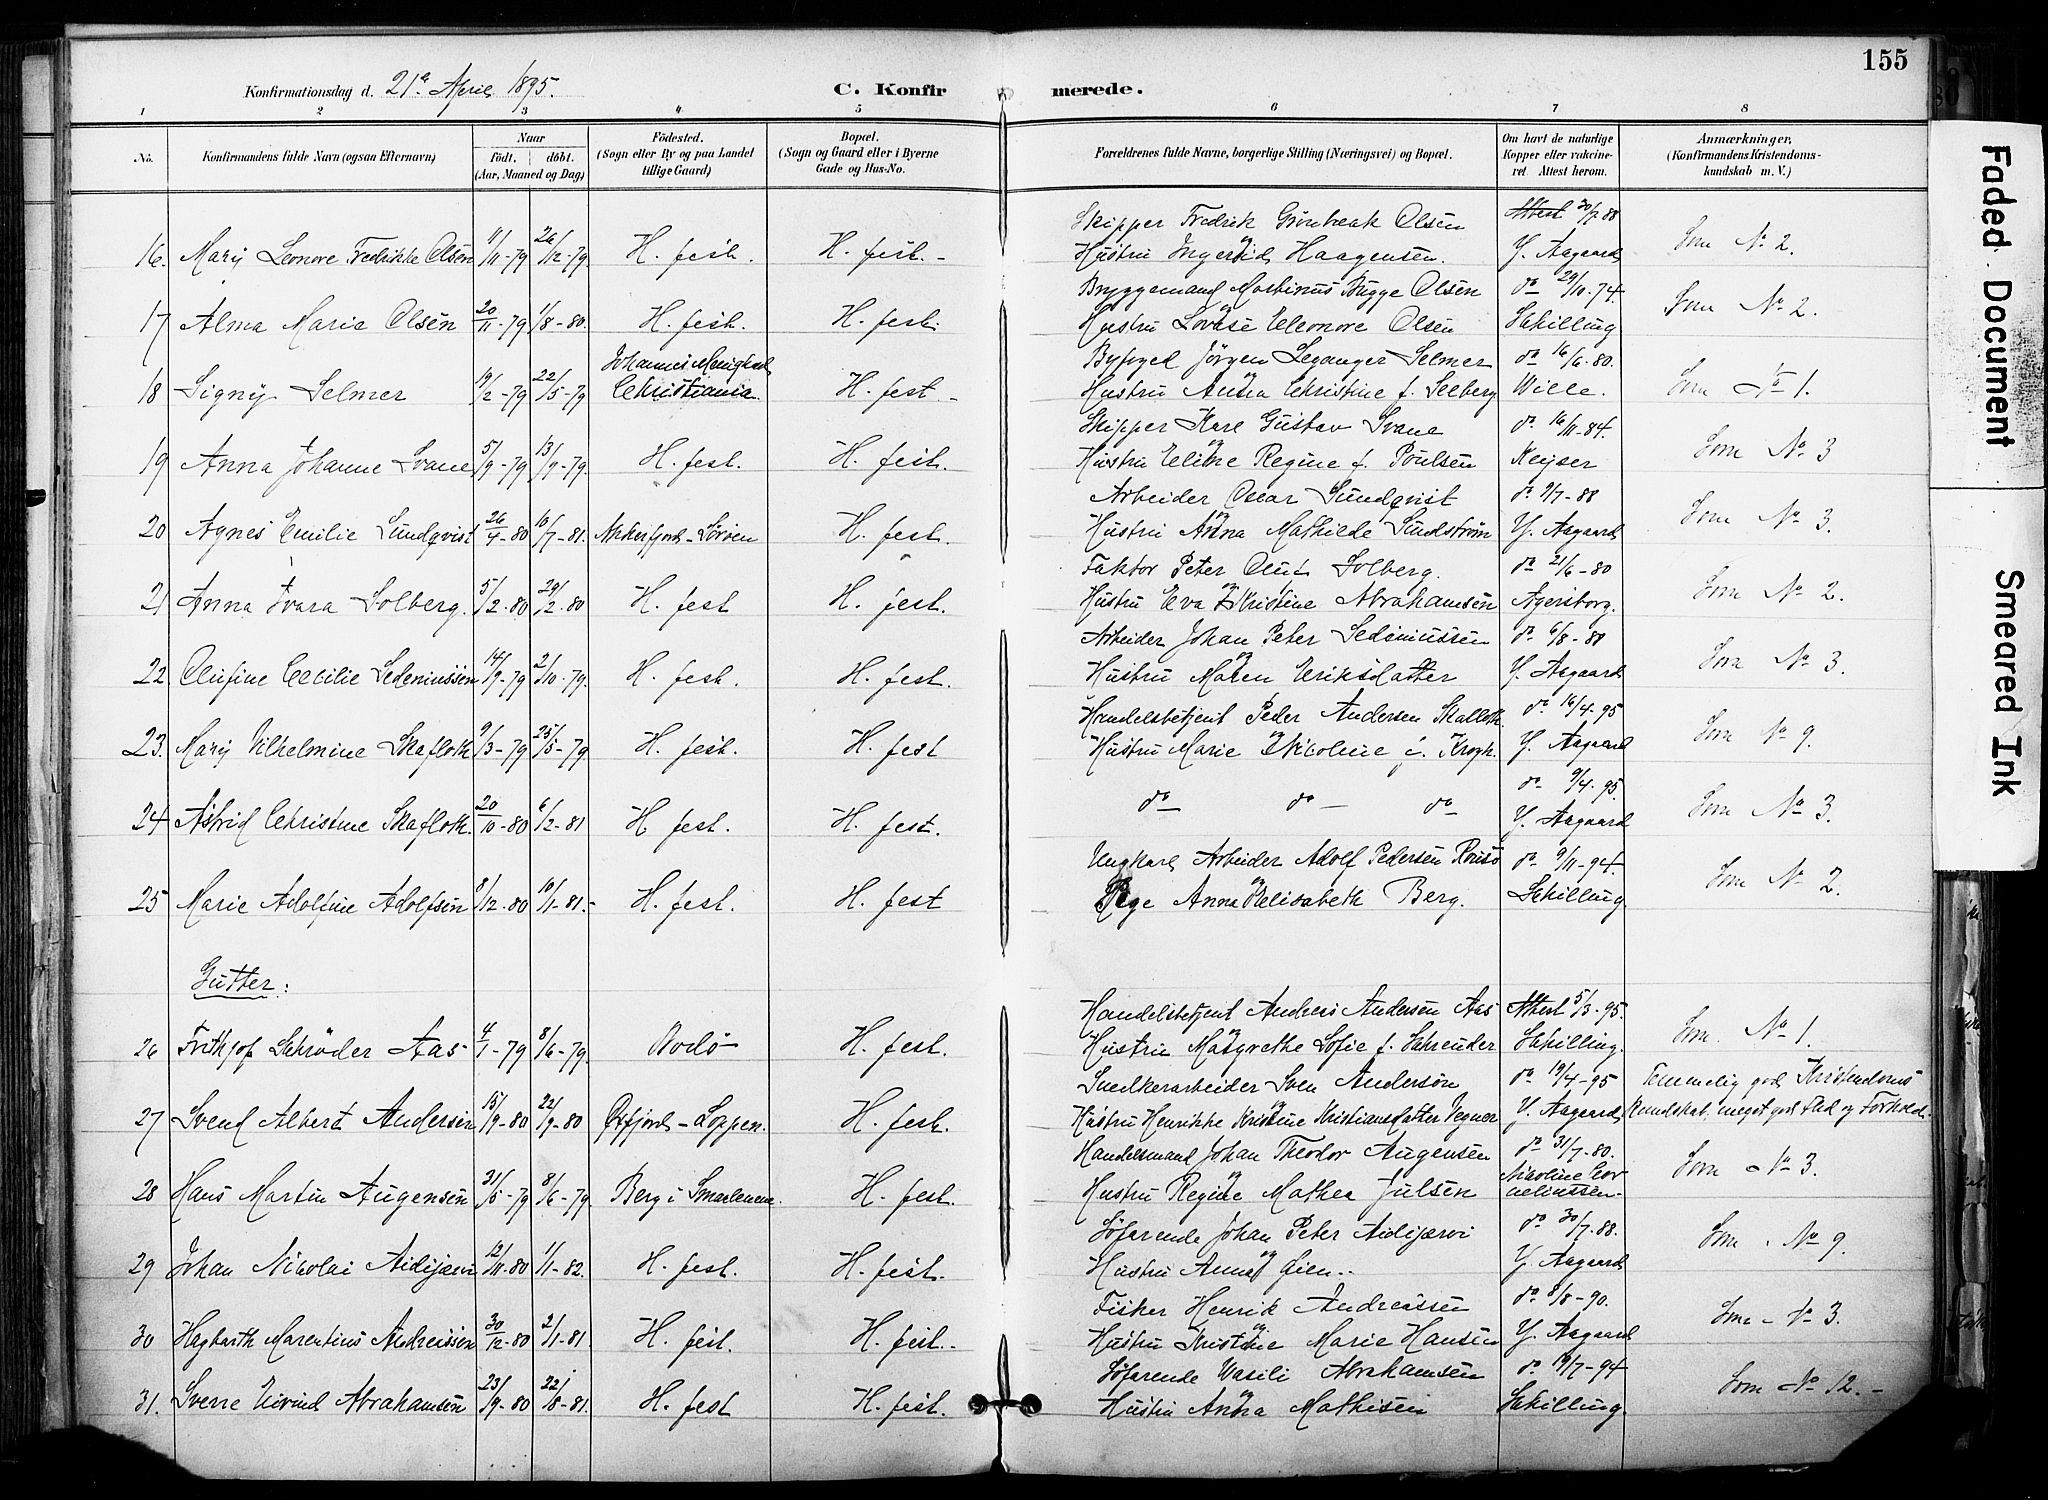 155
Konfirmationsdag d. 21de April 1895.
C. Konfirmerede.
1 2 3 4 5 6 7 8
No.
Konfirmandens fulde Navn (ogsaa Efternavn)
Naar
födt. döbt.
(Aar, Maaned og Dag)
Födested.
(Sogn eller By og paa Landet
tillige Gaard)
Bopæl.
(Sogn og Gaard eller i Byerne
Gade og Hus-No.
Forældrenes fulde Navne, borgerlige Stilling (Næringsvei) og Bopæl.
Om havt de naturlige
Kopper eller vakcine-
ret Attest herom.
Anmærkninger,
(Konfirmandens Kristendoms-
kundskab m. V.)
Skipper Fredrik Grønbeck Olsen Attest 30/7 88
16. Mary Leonore Fredrikke Olsen 11/11-79 26/12-79. H. fest. H. fest. Hustru Ingerid Haagensen. Y. Aagaard Som No 2.
Bryggemand Martinus Bugge Olsen do 29/10-74.
17 Alma Marie Olsen 20/11-79 1/8-80. H. fest. H. fest. Hustru Lovise Eleonore Olsen Schilling Som No 2.
Johannes Menighed Byfoged Jørgen Leganger Selmer do 16/6-80.
18 Signy Selmer 9/2-79 22/5-79 Christiania H. fest. Hustru Anna Christine f. Seeberg Wille. Som No 1.
Skipper Karl Gustav Svane do 16/11-84.
19 Anna Johanne Svane 5/9-79 13/9-79. H. fest. H. fest. Hustru Eline Regine f. Poulsen Keyser Som No 3
Arbeider Oscar Sundqvist do 9/7-88
20 Agnes Emilie Sundqvist 26/4-80 10/7-81. Akkerfjord-Sørøen H. fest. Hustru Anna Mathilde Sundstrøm Y. Aagaard Som No 3.
Faktor Peter Oluf Solberg. do 21/6-80
21 Anna Svara Solberg. 5/2-80 29/2-80 H. fest H. fest. Hustru Eva Kristine Abrahamsen Agersborg. Som No 2.
Arbeider Johan Peter Sedeniussen do 6/8-80
22. Olufine Cecilie Sedeniussen 14/9-79 2/10-79. H. fest. H. fest. Hustru Maren Eriksdatter Y. Aagaard Som No 3.
Handelsbetjent Peder Andersen Skafloth. do 16/4-95
23. Mary Vilhelmine Skafloth 9/3-79 25/5-79 H. fest. H. fest Hustru Marie Nicoline f. Krogh. Y. Aagaard Som No 9.
do 9/4-95.
24 Astrid Christine Skafloth. 20/10-80 6/2-81 H fest. H. fest. do do do Y. Aagaard Som No 3.
Ungkarl Arbeider Adolf Pedersen do 9/11-94.
25 Marie Adolfine Adolfsen 8/12-80 10/1-81. H. fest. H. fest Pige Anna Elisabeth Berg. Schilling. Som No 2.
Gutter:
Handelsbetjent Andreas Andersen Aas Attest 5/3-95.
26 Frithjof Schrøder Aas 4/1-79 8/6-79. Bodø H. fest. Hustru Margrethe Sofie f. Schreuder Schilling. Som No 1.
Snedkerarbeider Sven Andersen do 19/4-95 Temmelig god Kristendoms
27 Svend Albert Andersen 15/9-80 22/9-80 Øxfjord-Loppen. H. fest. Hustru Henrikke Kristine Kristiansdatter Vegner Y. Aagaard kundskab, meget god Flid og Forhold.
Handelsmand Johan Theodor Augensen do 31/7-80.
28 Hans Martin Augensen 31/5-79 8/6-79. Berg i Smaalenene. H. fest. Hustru Regine Mathea Julsen Nicoline Cor-
neliussen. Som No 3.
Söfarende Johan Peter Aidijærvi do 30/7-88.
29 Johan Nicolai Aidijærvi 12/11-80 1/1-82. H. fest. H. fest. Hustru Anna Gien.. Y. Aagaard Som No 9.
Fisker Henrik Andreassen do 8/8-90.
30 Hagbarth Marentius Andreassen 30/12-80 2/1-81. H. fest. H. fest. Hustru Kristine Marie Hansen Y. Aagaard Som No 3.
Söfarende Wasili Abrahamsen do 19/7-94
31. Sverre Eivind Abrahamsen 23/9-80 22/8-81. H. fest H. fest. Hustru Anna Mathisen Schilling. Som No 12.
Faded Document
Smeared Ink